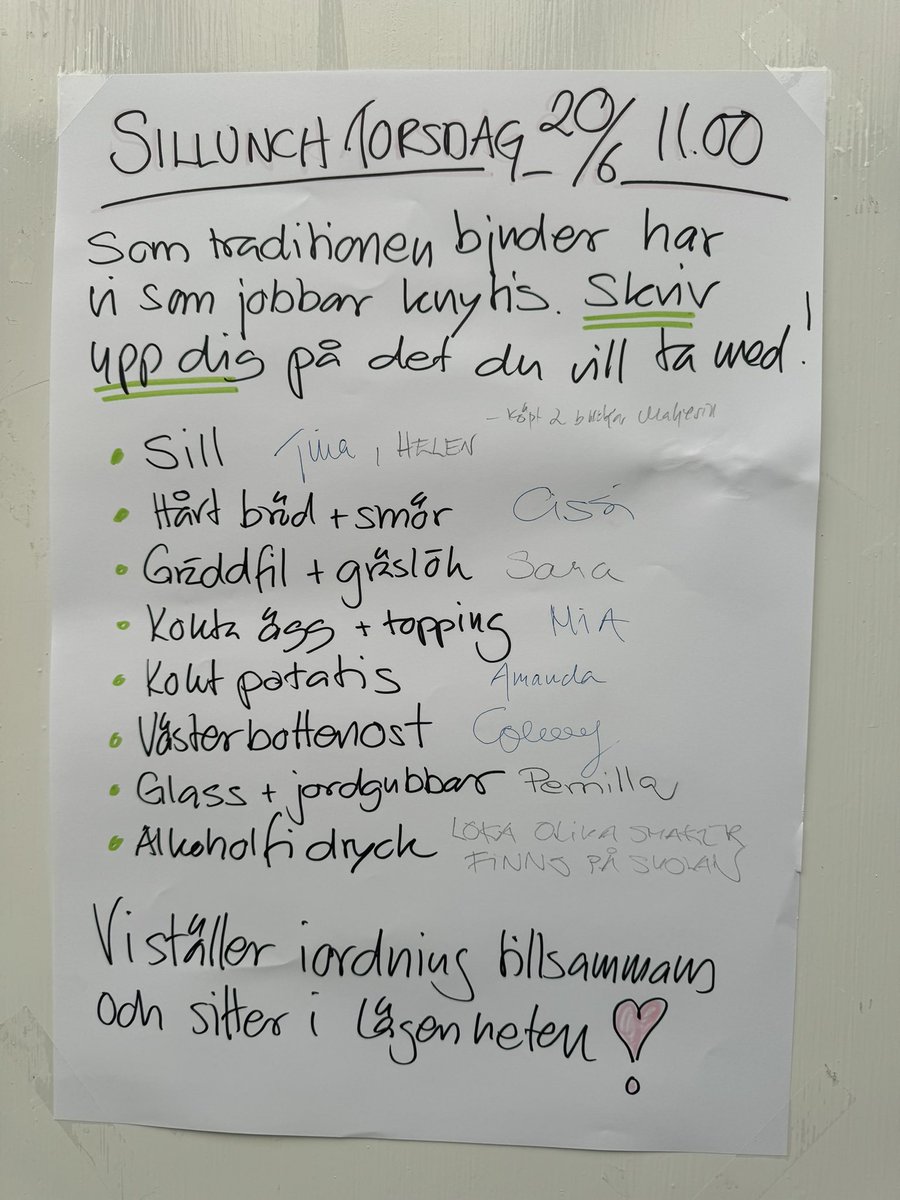 SILLUNCH TORSDAG 20/6 11.00
Som traditionen bjuder har
vi som jobbar knytis. Skriv
upp dig på det du vill ta med!
- Köpt 2 burkar
• Sill Tina, HELEN
• Hårt bröd + smör Cissi
• Gräddfil + gräslök Sara
• Kokta ägg + topping MiA
• Kokt potatis Amanda
• Västerbottenost
• Glass + jordgubbar Pernilla
• Alkoholfi dryck LOKA OLIKA SMAKER
FINNS PÅ SKOLAN
Vi ställer iordning tillsammans
och sitter i lägenheten